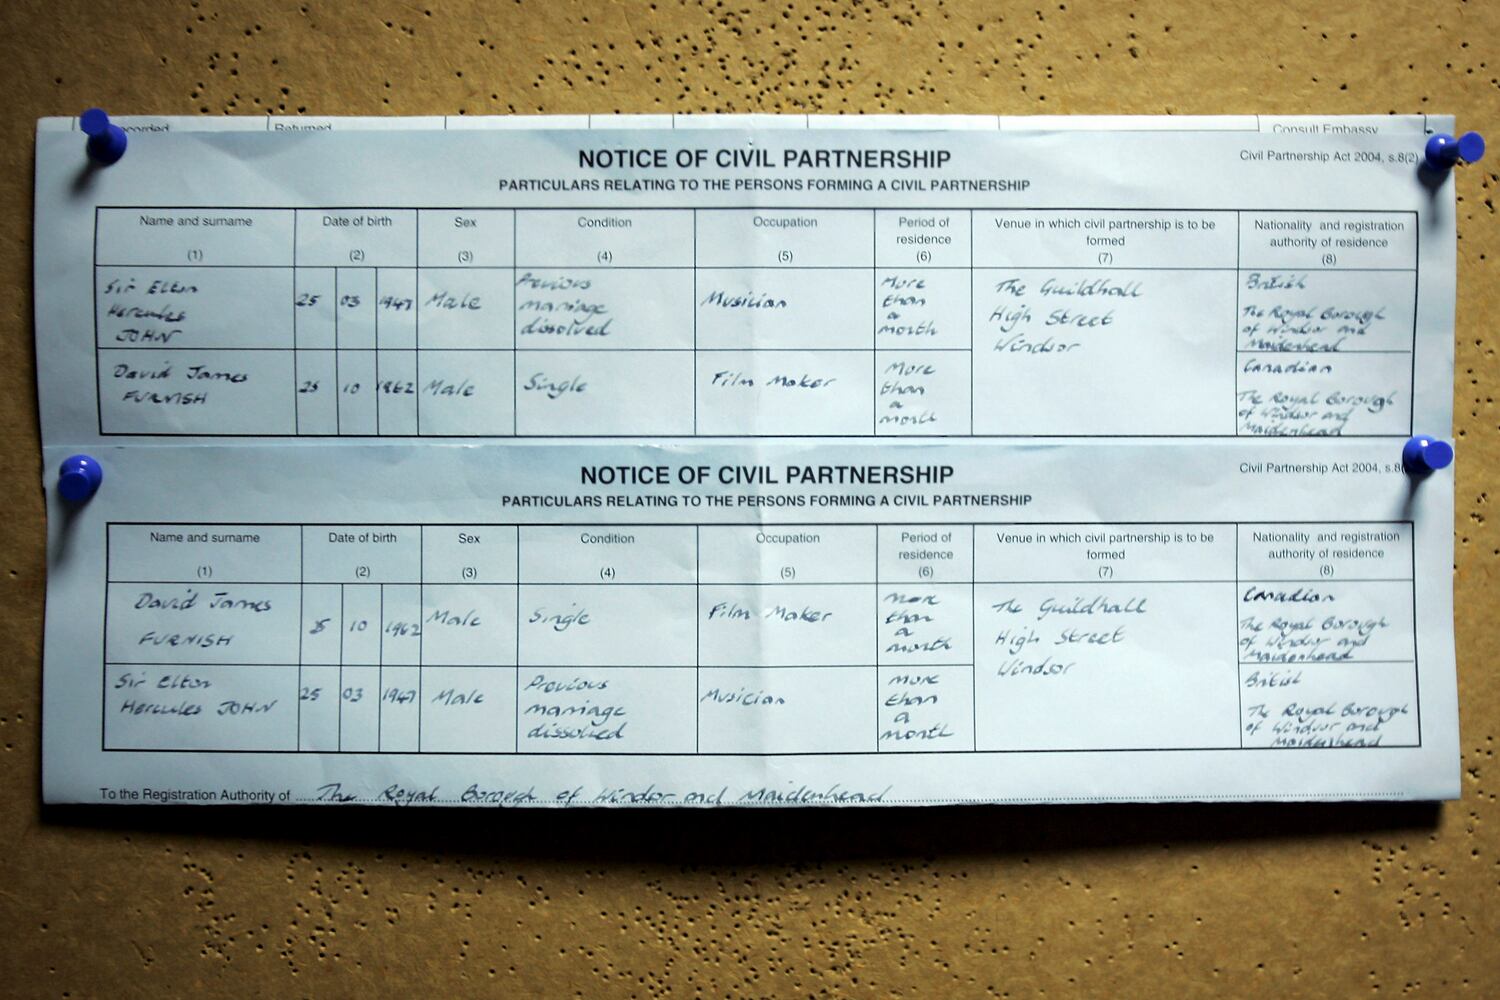 Returned
Consult Embassy
NOTICE OF CIVIL PARTNERSHIP
Civil Partnership Act 2004, s.8(2)
PARTICULARS RELATING TO THE PERSONS FORMING A CIVIL PARTNERSHIP
Name and surname
(1)
Date of birth
(2)
Sex
(3)
Condition
(4)
Occupation
(5)
Period of
residence
(6)
Venue in which civil partnership is to be
formed
(7)
Nationality and registration
authority of residence
(8)
Sir Elton
Hercules
JOHN
25 03 1947
Male
Previous
marriage
dissolved
Musician
More
than
a
month
The Guildhall
High Street
Windsor
British
The Royal Borough
of Windsor and
Maidenhead
David James
FURNISH
25 10 1962
Male
Single
Film Maker
More
than
a
month
Canadian
The Royal Borough
of Windsor and
Maidenhead
NOTICE OF CIVIL PARTNERSHIP
Civil Partnership Act 2004, s.8
PARTICULARS RELATING TO THE PERSONS FORMING A CIVIL PARTNERSHIP
Name and surname
(1)
Date of birth
(2)
Sex
(3)
Condition
(4)
Occupation
(5)
Period of
residence
(6)
Venue in which civil partnership is to be
formed
(7)
Nationality and registration
authority of residence
(8)
David James
FURNISH
10 1962
Male
Single
Film Maker
more
than
a
month
The Guildhall
High Street
Windsor
Canadian
The Royal Borough
of Windsor and
Maidenhead
Sir Elton
Hercules JOHN
25 03 1947
Male
Previous
marriage
dissolved
Musician
more
than
a
month
British
The Royal Borough
of Windsor and
Maidenhead
To the Registration Authority of The Royal Borough of Windsor and Maidenhead